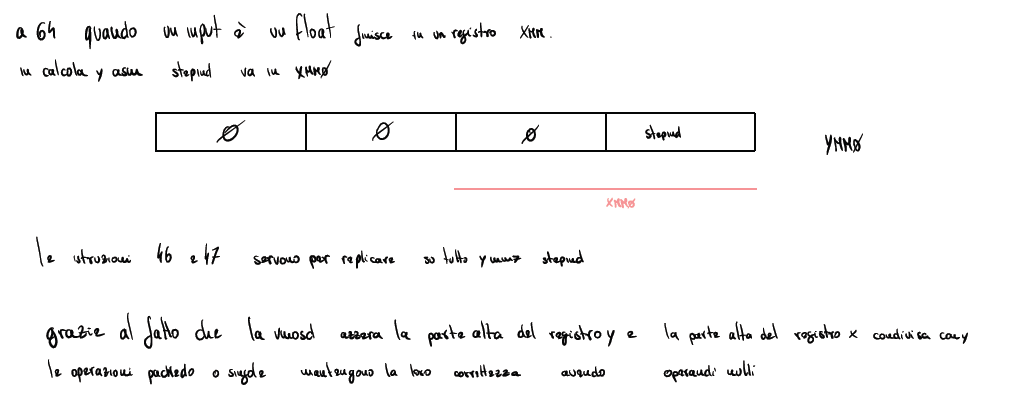 a 64 quando un input è un float finisce in un registro XMM.
in calcola y asm stepind va in XMM0
0 0 0 stepind YMM0
XMM0
le istruzioni 46 e 47 servono per replicare su tutto ymm7 stepind
grazie al fatto che la vmosd azzera la parte alta del registro y e la parte alta del registro x condivisa con y
le operazioni packed o single mantengono la loro correttezza avendo operandi nulli